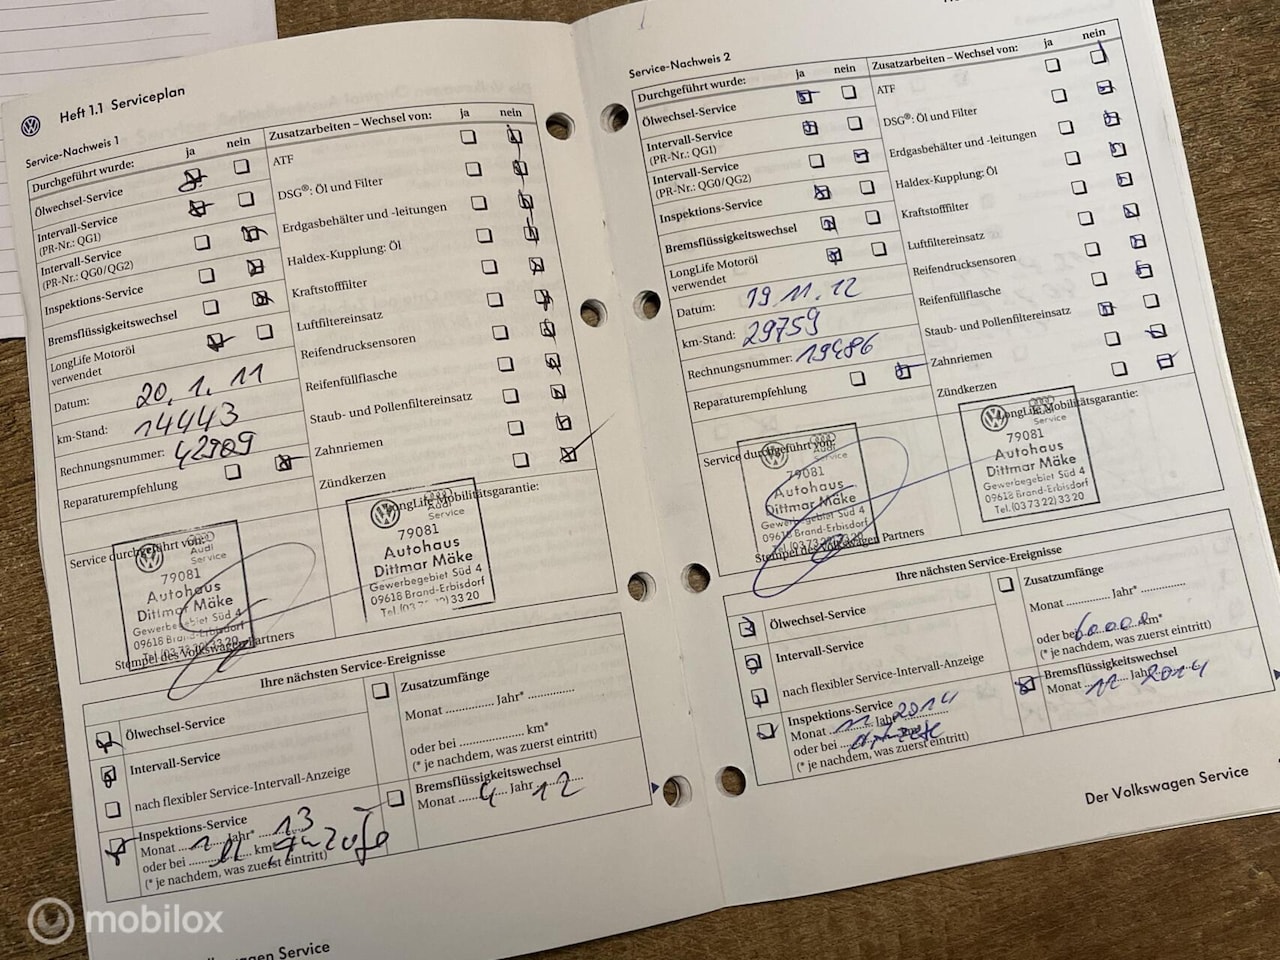 Heft 1.1 Serviceplan
Service-Nachweis 1
Durchgeführt wurde: ja nein
Ölwechsel-Service
Intervall-Service
(PR-Nr.: QG1)
Intervall-Service
(PR-Nr.: QG0/QG2)
Inspektions-Service
Bremsflüssigkeitswechsel
LongLife Motoröl
verwendet
Datum: 20. 1. 11
km-Stand: 14443
Rechnungsnummer:
Reparaturempfehlung
Zusatzarbeiten – Wechsel von: ja nein
ATF
DSG®: Öl und Filter
Erdgasbehälter und -leitungen
Haldex-Kupplung: Öl
Kraftstofffilter
Luftfiltereinsatz
Reifendrucksensoren
Reifenfüllflasche
Staub- und Pollenfiltereinsatz
Zahnriemen
Zündkerzen
Service durchgeführt von:
Audi
Service
79081
Autohaus
Dittmar Mäke
Gewerbegebiet Süd 4
09618 Brand-Erbisdorf
Stempel des Volkswagen Partners
LongLife Mobilitätsgarantie:
Audi
Service
79081
Autohaus
Dittmar Mäke
Gewerbegebiet Süd 4
09618 Brand-Erbisdorf
Tel. (03 73 22) 33 20
Ihre nächsten Service-Ereignisse
Ölwechsel-Service
Intervall-Service
nach flexibler Service-Intervall-Anzeige
Inspektions-Service
Monat 1 Jahr* 13
oder bei km*
(* je nachdem, was zuerst eintritt)
Zusatzumfänge
Monat .............. Jahr* ..............
oder bei .................... km*
(* je nachdem, was zuerst eintritt)
Bremsflüssigkeitswechsel
Monat Jahr 12
Service-Nachweis 2
Durchgeführt wurde: ja nein
Ölwechsel-Service
Intervall-Service
(PR-Nr.: QG1)
Intervall-Service
(PR-Nr.: QG0/QG2)
Inspektions-Service
Bremsflüssigkeitswechsel
LongLife Motoröl
verwendet
Datum: 19 11. 12
km-Stand: 29759
Rechnungsnummer: 19486
Reparaturempfehlung
Zusatzarbeiten – Wechsel von: ja nein
ATF
DSG®: Öl und Filter
Erdgasbehälter und -leitungen
Haldex-Kupplung: Öl
Kraftstofffilter
Luftfiltereinsatz
Reifendrucksensoren
Reifenfüllflasche
Staub- und Pollenfiltereinsatz
Zahnriemen
Zündkerzen
Service durchgeführt von:
Audi
Service
79081
Autohaus
Dittmar Mäke
Gewerbegebiet Süd 4
09618 Brand-Erbisdorf
Stempel des Volkswagen Partners
LongLife Mobilitätsgarantie:
Service
79081
Autohaus
Dittmar Mäke
Gewerbegebiet Süd 4
09618 Brand-Erbisdorf
Tel. (03 73 22) 33 20
Ihre nächsten Service-Ereignisse
Ölwechsel-Service
Intervall-Service
nach flexibler Service-Intervall-Anzeige
Inspektions-Service
Monat 11 Jahr* 2014
oder bei
(* je nachdem, was zuerst eintritt)
Zusatzumfänge
Monat .............. Jahr* ..............
oder bei 60000 km*
(* je nachdem, was zuerst eintritt)
Bremsflüssigkeitswechsel
Monat 11 Jahr 2014
Der Volkswagen Service
mobilox